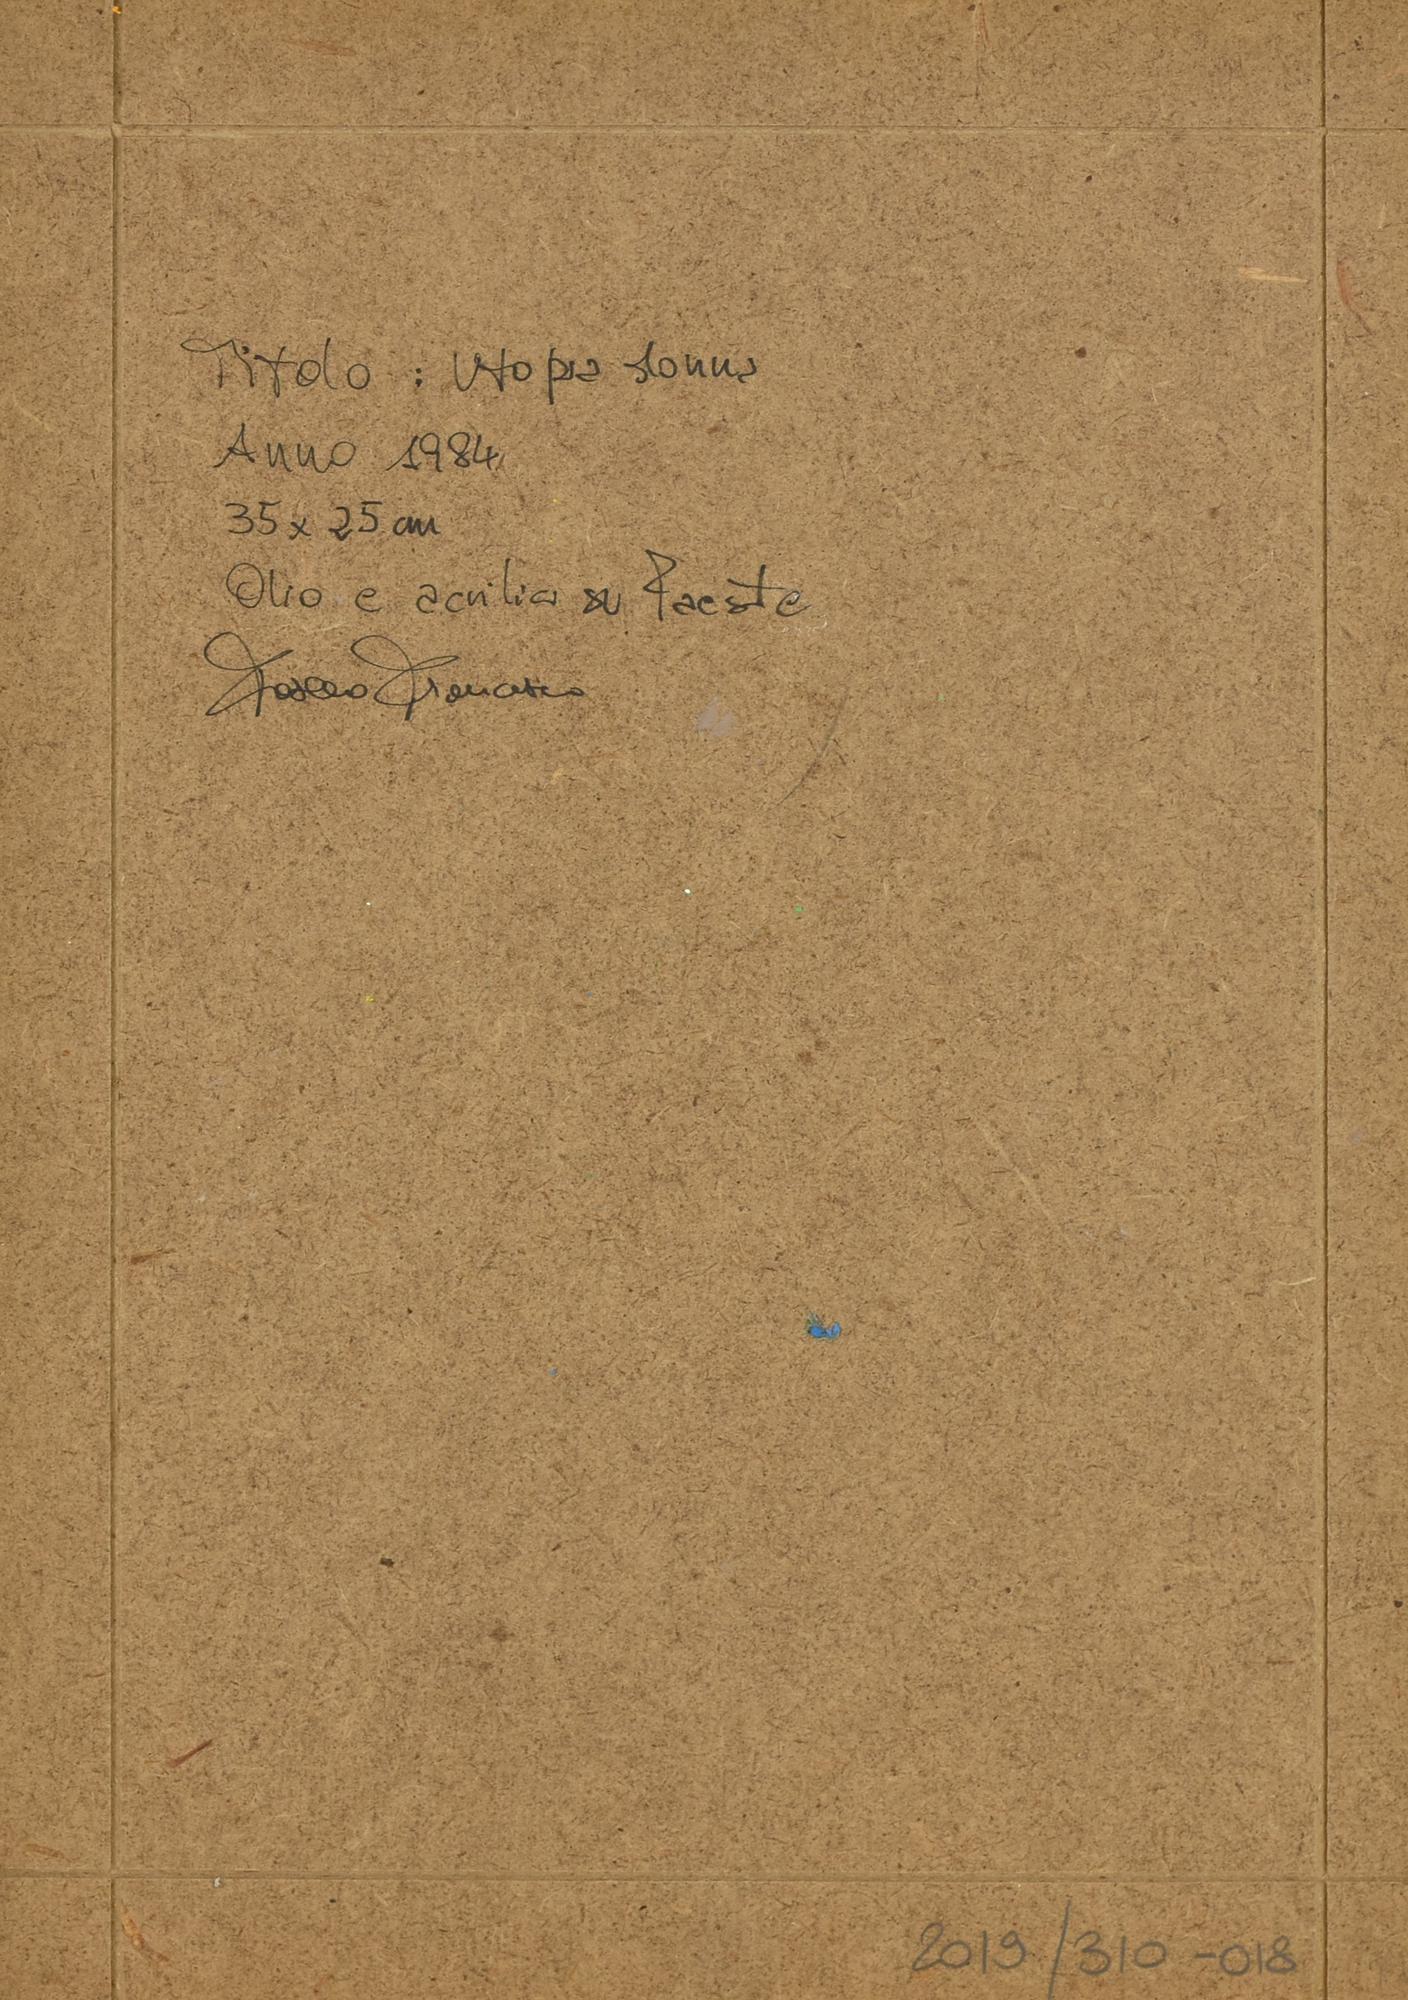 Titolo : Utopia donna
Anno 1984
35 x 25 cm
Olio e acrilico su Faesite
Francesco
2019/310-018